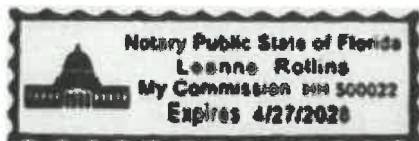 Notary Public State of Florida
Leanne Rollins
My Commission HH 500022
Expires 4/27/2028